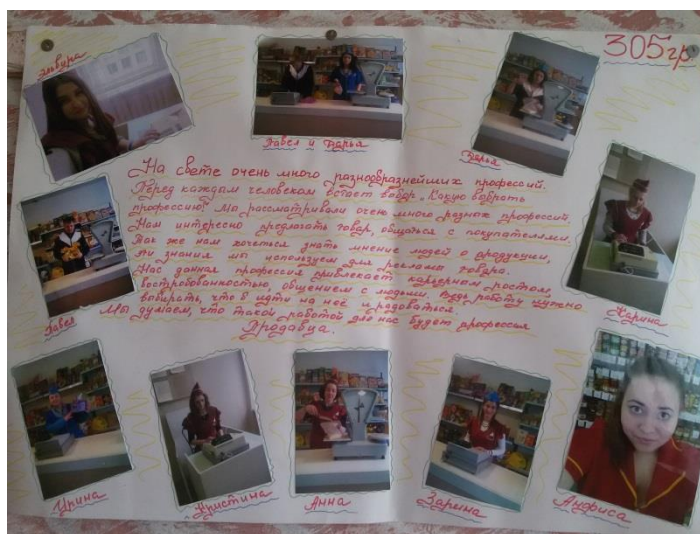 305гр.
Эльвира
Павел и Дарья
Дарья
На свете очень много разнообразнейших профессий.
Перед каждым человеком встает выбор. Какую выбрать
профессию? Мы рассматривали очень много разных профессий.
Нам интересно предлагать товар, общаться с покупателями.
Так же нам хочеться знать мнение людей о продукции,
эти знания мы используем для рекламы товара.
Нас данная профессия привлекает карьерным ростом,
востребованностью, общением с людьми. Ведь работу нужно
выбирать, что б идти на неё и радоваться.
Мы думаем, что такой работой для нас будет профессия
Продавца.
Павел
Карина
Ирина
Кристина
Анна
Зарина
Анфиса